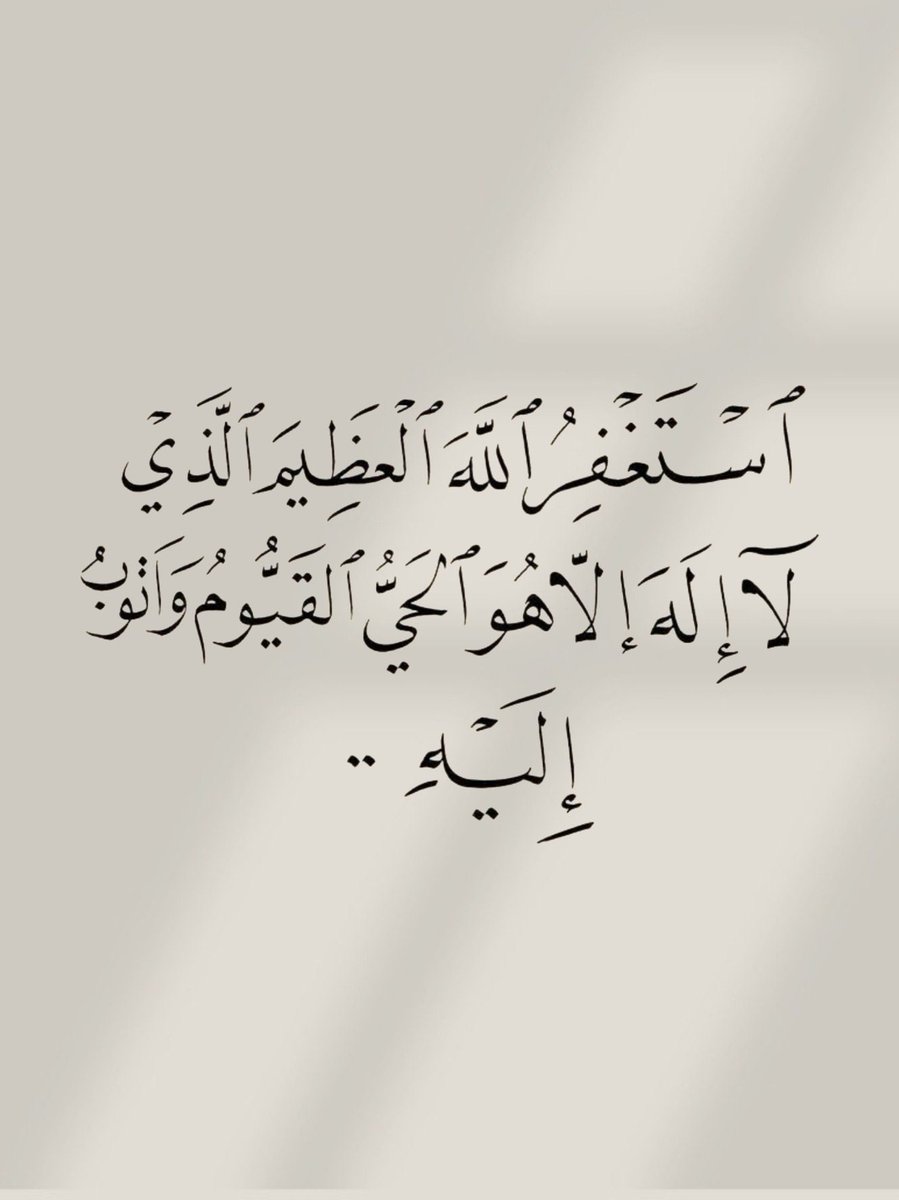 ٱسْتَغْفِرُ ٱللَّهَ ٱلْعَظِيمَ ٱلَّذِيْ
لَآ إِلَهَ إِلّا هُوَ ٱلحَيُّ ٱلقَيُّومُ وَأَتُوبُ
إِلَيْهِ ..